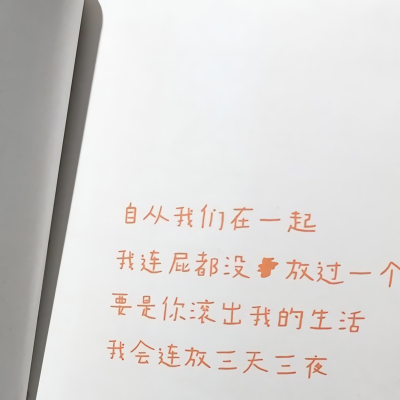 自从我们在一起
我连屁都没放过一个
要是你滚出我的生活
我会连放三天三夜